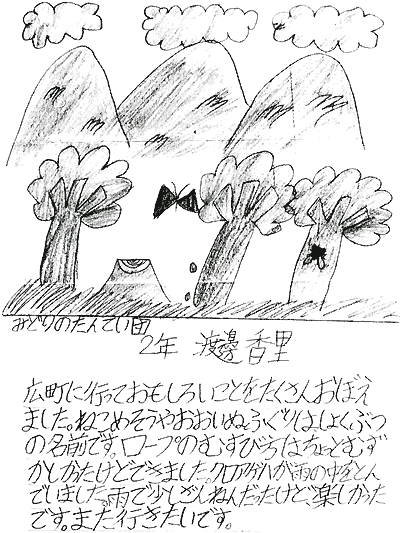 みどりのたんてい団
2年 渡邊香里
広町に行っておもしろいことをたくさんおぼえ
ました。ねこめそうやおおいぬふぐりは、しょくぶつ
の名前です。ロープのむすび方はちょっとむず
かしかったけどできました。クロアゲハが雨の中をとん
でいました。雨で少しざんねんだったけど、楽しかった
です。また行きたいです。